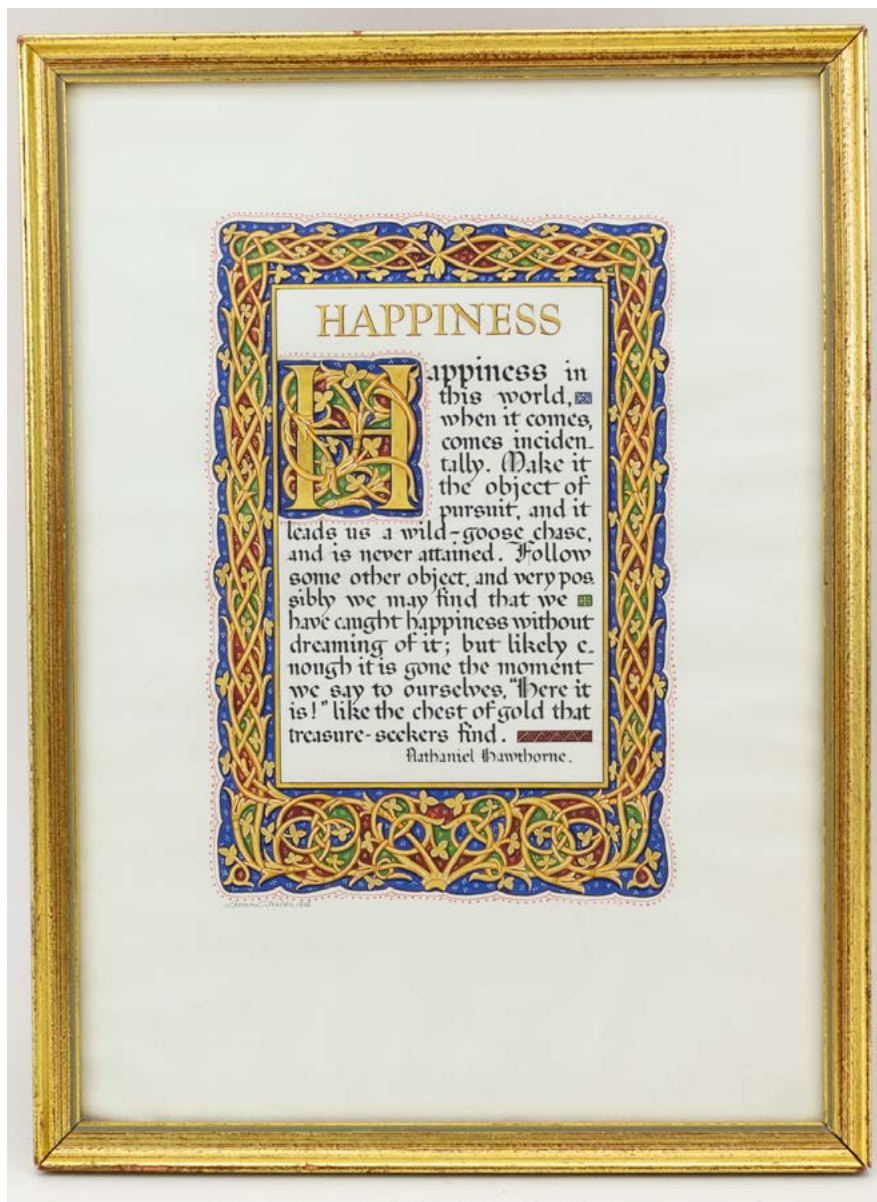 HAPPINESS
Happiness in
this world,
when it comes,
comes inciden-
tally. Make it
the object of
pursuit, and it
leads us a wild-goose chase,
and is never attained. Follow
some other object, and very pos
sibly we may find that we
have caught happiness without
dreaming of it; but likely e-
nough it is gone the moment
we say to ourselves, "Here it
is!" like the chest of gold that
treasure-seekers find.
Nathaniel Hawthorne.